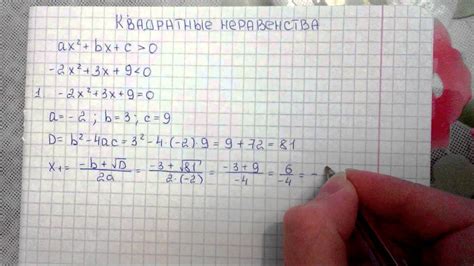 Квадратные неравенства
ax²+bx+c>0
-2x²+3x+9<0
1. -2x²+3x+9=0
a=-2; b=3; c=9
D=b²-4ac=3²-4·(-2)9=9+72=81
x₁=(-b+√D)/(2a)=(-3+√81)/(2·(-2))=(-3+9)/(-4)=6/(-4)=-